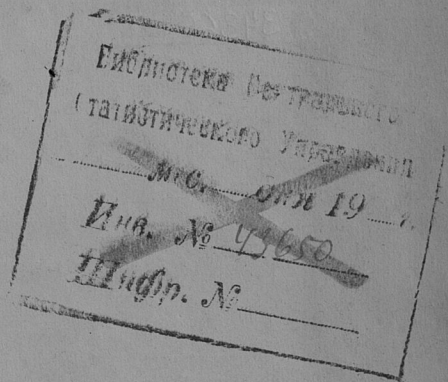 Библиотека Центрального
Статистического Управления
мес. дня 19 г.
Инв. № 43650
Шифр. №